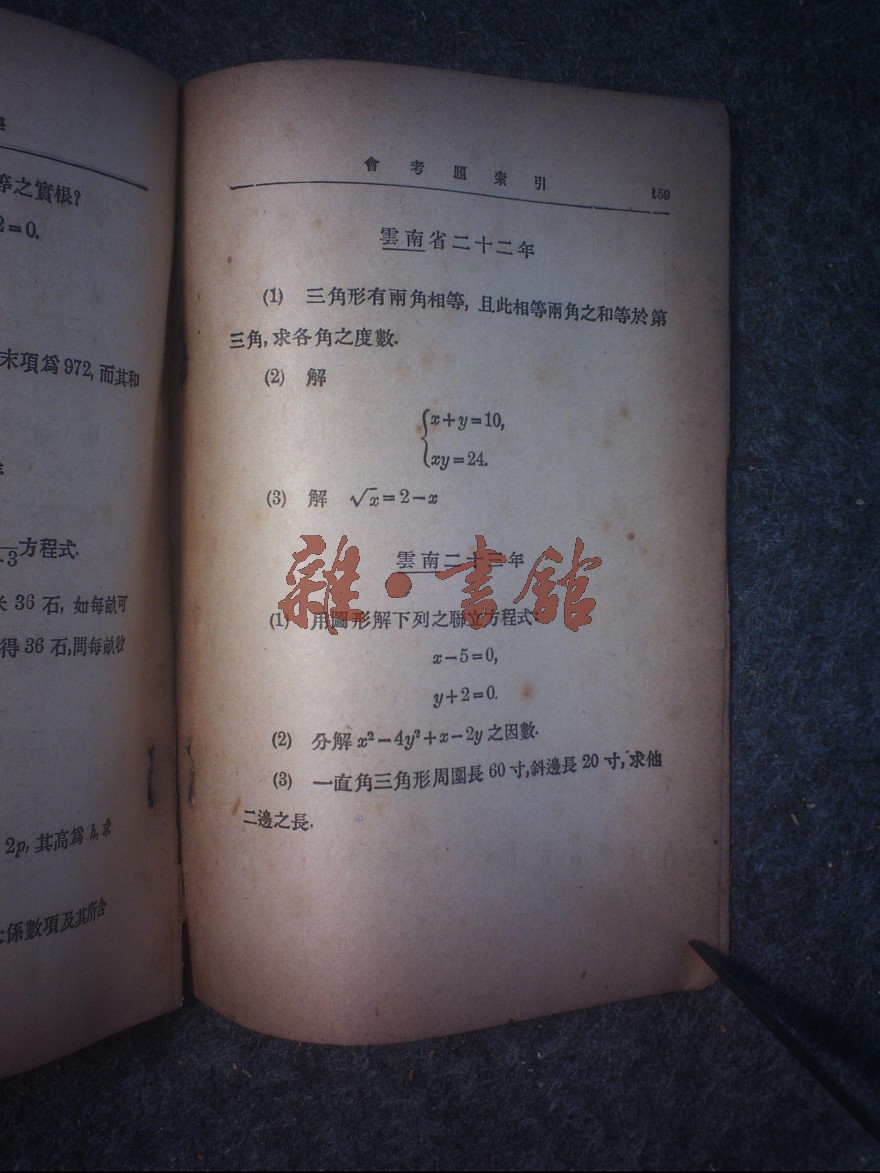 等之實根?
2=0.
末項爲 972, 而其和
方程式.
36 石, 如每畝可
得 36 石,問每畝收
2p, 其高爲 h, 求
係數項及其所含
會考題索引 159
雲南省二十二年
(1) 三角形有兩角相等, 且此相等兩角之和等於第
三角, 求各角之度數.
(2) 解
x+y=10,
xy=24.
(3) 解 √x=2−x
雲南二十三年
(1) 用圖形解下列之聯立方程式:
x−5=0,
y+2=0.
(2) 分解 x²−4y²+x−2y 之因數.
(3) 一直角三角形周圍長 60 寸,斜邊長 20 寸,求他
二邊之長.
雜·書館